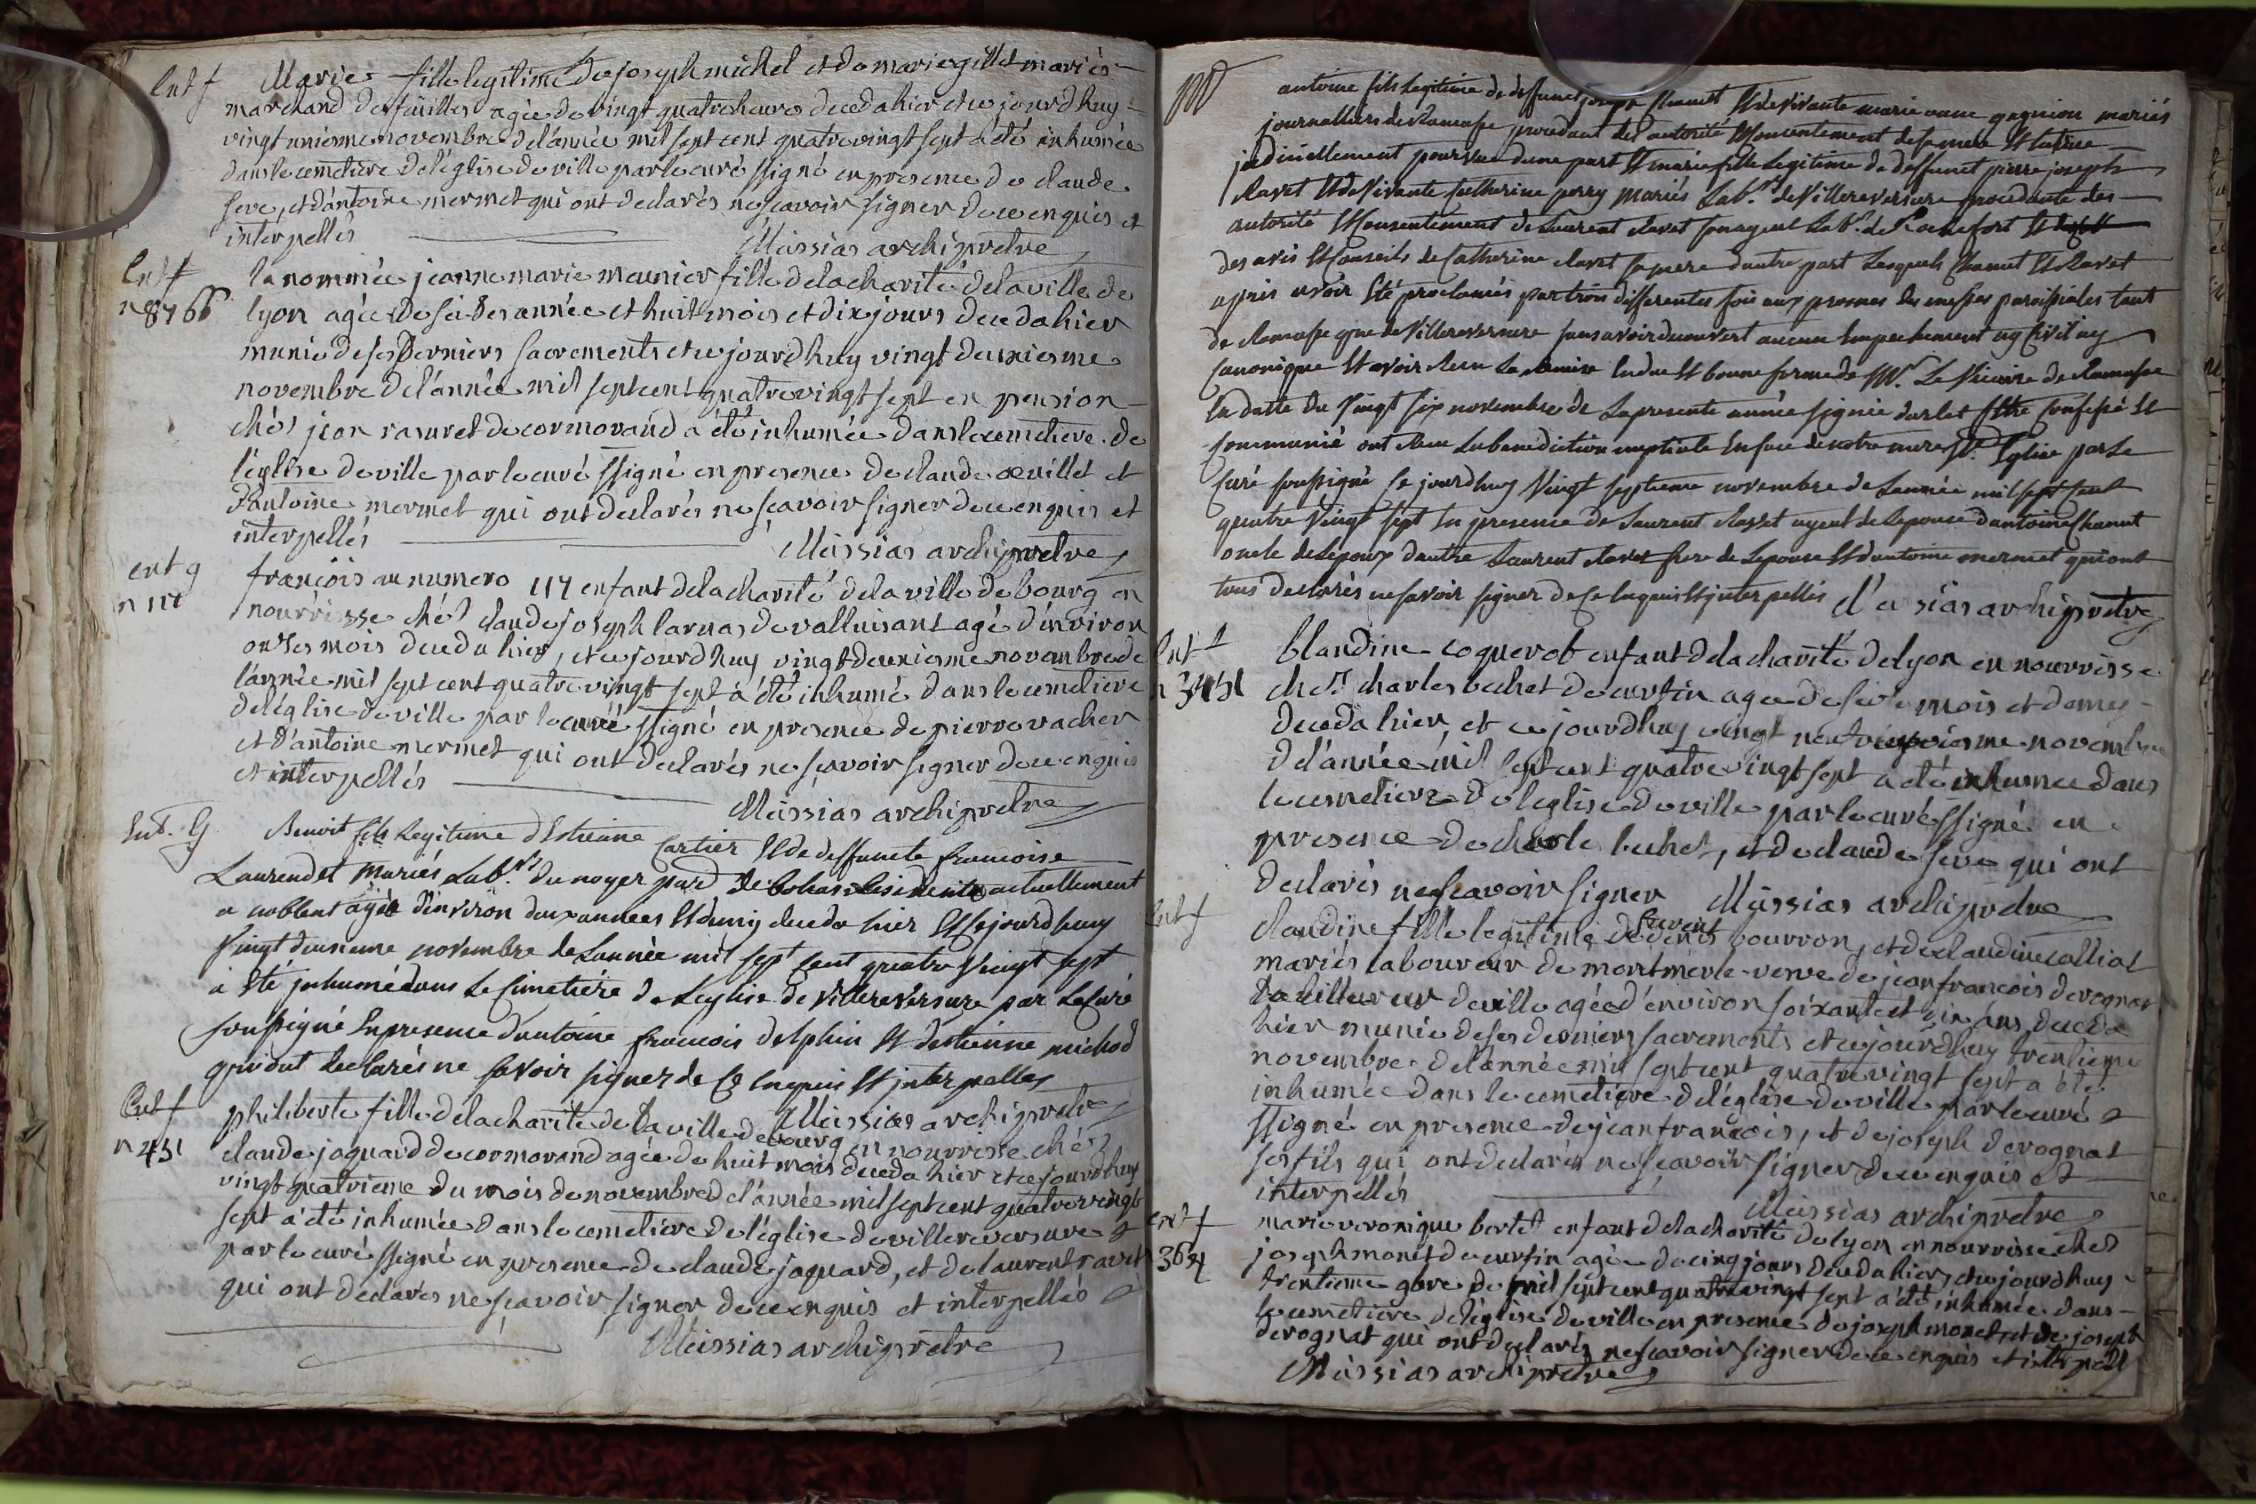 Ent f
Marie fille legitime de joseph michel et de marie gillet mariés
marchand des feuilles agée de vingt quatre heures decedahier et ce jourdhuy
vingt unieme novembre de l'année mil sept cent quatre vingt sept a été inhumée
dans le cemetiere de l'église de ville par le curé ssigné en presence de claude
seve, et d'antoine mermet qui ont declarés ne scavoir signer de ce enquis et
interpellés
Meissias archipretre
Ent f
n 8766
la nommée jeanne marie meunier fille de la charité de la ville de
lyon agée de seizes année et huit mois et dix jours decedahier
munie de ses derniers sacrements et ce jourdhuy vingt deuxiesme
novembre de l'année mil sept cent quatre vingt sept en pension
chés jean rasuret de cormorand a été inhumée dans le cemetiere de
l'église de ville par le curé ssigné en presence de claude œuillet et
d'antoine mermet qui ont declarés ne scavoir signer de ce enquis et
interpellés
Meissias archipretre
ent g
n 117
françois au numero 117 enfant de la charité de la ville de bourg en
nourrisse chés claude joseph larnas de valluisant agé d'environ
onzes mois decedahier, et ce jourdhuy vingt deuxiesme novembre de
l'année mil sept cent quatre vingt sept à été inhumé dans le cemetiere
de l'église de ville par le curé ssigné en presence de pierre vacher
et d'antoine mermet qui ont declarés ne scavoir signer de ce enquis
et interpellés
Meissias archipretre
Ent. G
Benoit fils legitime d'Estienne Cartier Et de deffuncte francoise
Laurendet mariés Lab.rs du noyer par.d de bohas Residents actuellement
a noblent agée d'environ deux annees Et demij decedé hier Et Cejourdhuy
Vingt deuxieme novembre de Lannée mil sept Cent quatre Vingt sept
à Eté jnhumé dans Le Cimetiére de Leglise de Villereversure par Le Curé
soussigné En presence d'antoine francois delphin Et destienne michod
qui ont declarés ne savoir signer de Ce enquis Et jnterpelles
Meissias archipretre
Ent f
n 451
philiberte fille de la charité de la ville de bourg en nourrisse chés
claude jaquard de cormorand agée de huit mois decedahier et ce jourdhuy
vingt quatrieme du mois de novembre de l'année mil sept cent quatre vingt
sept a été inhumée dans le cemetiere de l'église de villereversure
par le curé ssigné en presence de claude jaquard, et de laurent ravet
qui ont declarés ne scavoir signer de ce enquis et interpellés
Meissias archipretre
antoine fils legitime de deffunct joseph chanut Et de Vivante marie anne gagnion mariés
journalliers de Ramasse procedant de l'autorité Et Consentement de sa mere Et tutrice
judiciellement pourvue dune part Et marie fille Legitime de deffunct pierre joseph
clavet Et de Vivante Catherine perry mariés Lab.rs de Villereversure procedante des
autorité Et Consentement de Laurent clavet son agent Lab.r de Rochefort Et
des avis Et Conseils de Catherine clavet sa mere dautre part Lesquels chanut Et clavet
aprés avoir Eté proclamés par trois differentes fois aux prosnes des messes paroissiales tant
de Ramasse que de Villereversure sans avoir decouvert aucun Empechement ny Civil ny
Canonique Et avoir Receu La Remise En due Et bonne forme de Mr. Le Vicaire de Ramasse
En datte du Vingt six novembre de La presente année signée darlet Ettre Confessé Et
Communié ont Receu La benediction nuptiale En face de notre mere Ste. Eglise par Le
Curé soussigné Ce jourdhuy Vingt septieme novembre de Lannée mil sept Cent
quatre Vingt sept En presence de Laurent clavet agent de Lepouse d'antoine Chanut
oncle de Lepoux dautre Laurent clavet frere de Lepouse Et dantoine mermet qui ont
tous declarés ne savoir signer de Ce Enquis Et jnterpellés Meissias archipretre
Ent f
n 3451
blandine coquerob enfant de la charité de lyon en nourrisse
chés charles bechet de curtin agée de seize mois et demy
decedahier, et ce jourdhuy vingt neuvieme novembre
de l'année mil sept cent quatre vingt sept a été inhumée dans
le cemetiere de l'eglise de ville par le curé ssigné en
presence de charle bechet, et de claude seve qui ont
declarés ne scavoir signer Meissias archipretre
Ent f
claudine fille legitime de denis pourron, et de claudine colliat
mariés laboureur de montmerle veuve de jean francois derognat
tailleur de ville agée d'environ soixante et dix ans, decedée
hier munie de ses derniers sacrements et ce jourdhuy trentieme
novembre de l'année mil sept cent quatre vingt sept a été
inhumée dans le cemetiere de l'église de ville par le curé
ssigné en presence de jean françois, et de joseph derognat
ses fils qui ont declarés ne scavoir signer de ce enquis et
interpellés
Meissias archipretre
ent f
marie veronique bertet enfant de la charité de lyon en nourrisse chés
joseph monet de curtin agée de cinq jours decedahier, et ce jourdhuy
trentieme 9bre de mil sept cent quatre vingt sept a été inhumée dans
le cemetiere de l'église de ville en presence de joseph monet, et de joseph
derognat qui ont declarés ne scavoir signer de ce enquis et interpell
Meissias archipretre